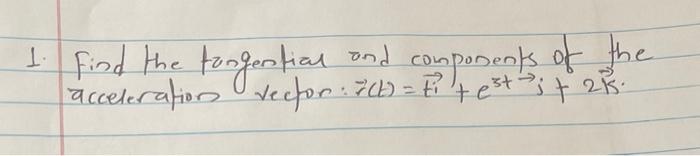 1. Find the tangential and components of the
acceleration vector: r⃗(t) = t i⃗ + e^3t j⃗ + 2k⃗.